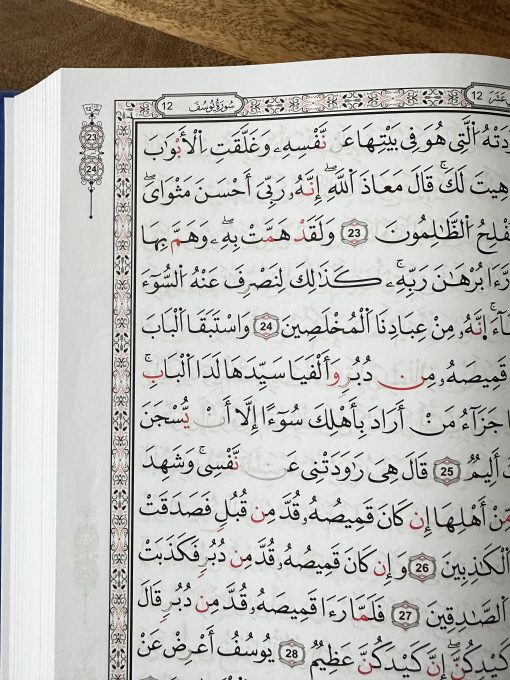 سُورَةُ يُوسُفَ 12
12
23
24
ٱلَّتِى هُوَ فِى بَيْتِهَا عَن نَّفْسِهِۦ وَغَلَّقَتِ ٱلْأَبْوَٰبَ
هَيْتَ لَكَ ۚ قَالَ مَعَاذَ ٱللَّهِ ۖ إِنَّهُۥ رَبِّىٓ أَحْسَنَ مَثْوَاىَ ۖ
ٱلظَّٰلِمُونَ 23 وَلَقَدْ هَمَّتْ بِهِۦ ۖ وَهَمَّ بِهَا
رَّءَا بُرْهَٰنَ رَبِّهِۦ ۚ كَذَٰلِكَ لِنَصْرِفَ عَنْهُ ٱلسُّوٓءَ
إِنَّهُۥ مِنْ عِبَادِنَا ٱلْمُخْلَصِينَ 24 وَٱسْتَبَقَا ٱلْبَابَ
قَمِيصَهُۥ مِن دُبُرٍ وَأَلْفَيَا سَيِّدَهَا لَدَا ٱلْبَابِ ۚ
جَزَآءُ مَنْ أَرَادَ بِأَهْلِكَ سُوٓءًا إِلَّآ أَن يُسْجَنَ
أَلِيمٌ 25 قَالَ هِىَ رَٰوَدَتْنِى عَن نَّفْسِى ۚ وَشَهِدَ
مِّنْ أَهْلِهَآ إِن كَانَ قَمِيصُهُۥ قُدَّ مِن قُبُلٍ فَصَدَقَتْ
ٱلْكَٰذِبِينَ 26 وَإِن كَانَ قَمِيصُهُۥ قُدَّ مِن دُبُرٍ فَكَذَبَتْ
ٱلصَّٰدِقِينَ 27 فَلَمَّا رَءَا قَمِيصَهُۥ قُدَّ مِن دُبُرٍ قَالَ
كَيْدِكُنَّ ۖ إِنَّ كَيْدَكُنَّ عَظِيمٌ 28 يُوسُفُ أَعْرِضْ عَنْ